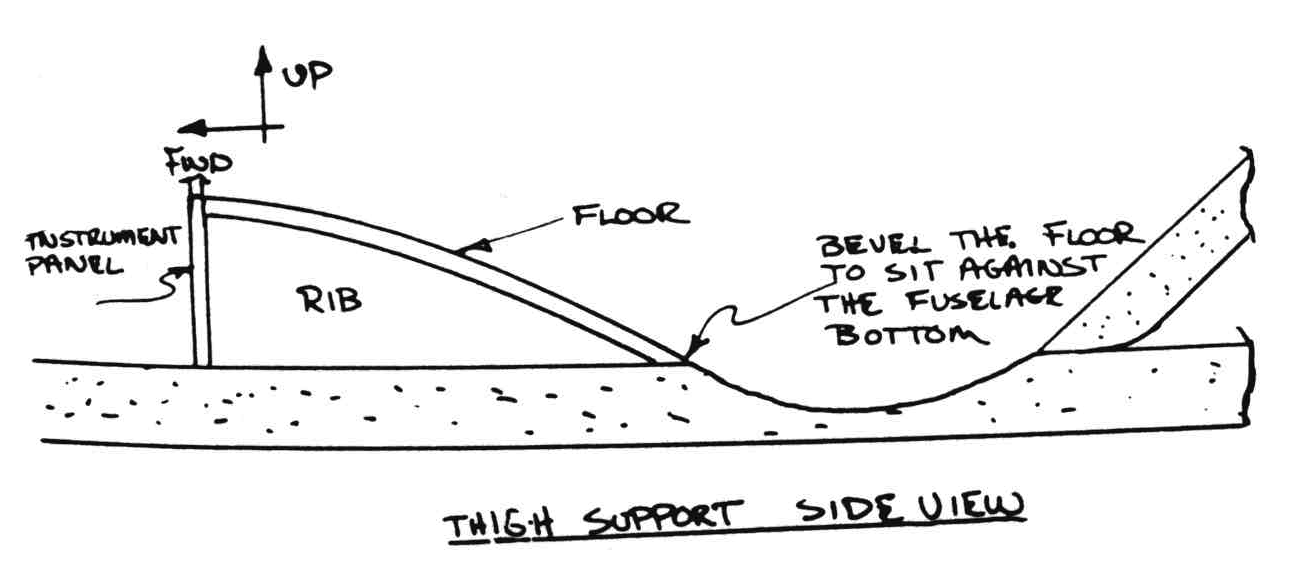 UP
FWD
INSTRUMENT
PANEL
RIB
FLOOR
BEVEL THE FLOOR
TO SIT AGAINST
THE FUSELAGE
BOTTOM
THIGH SUPPORT SIDE VIEW